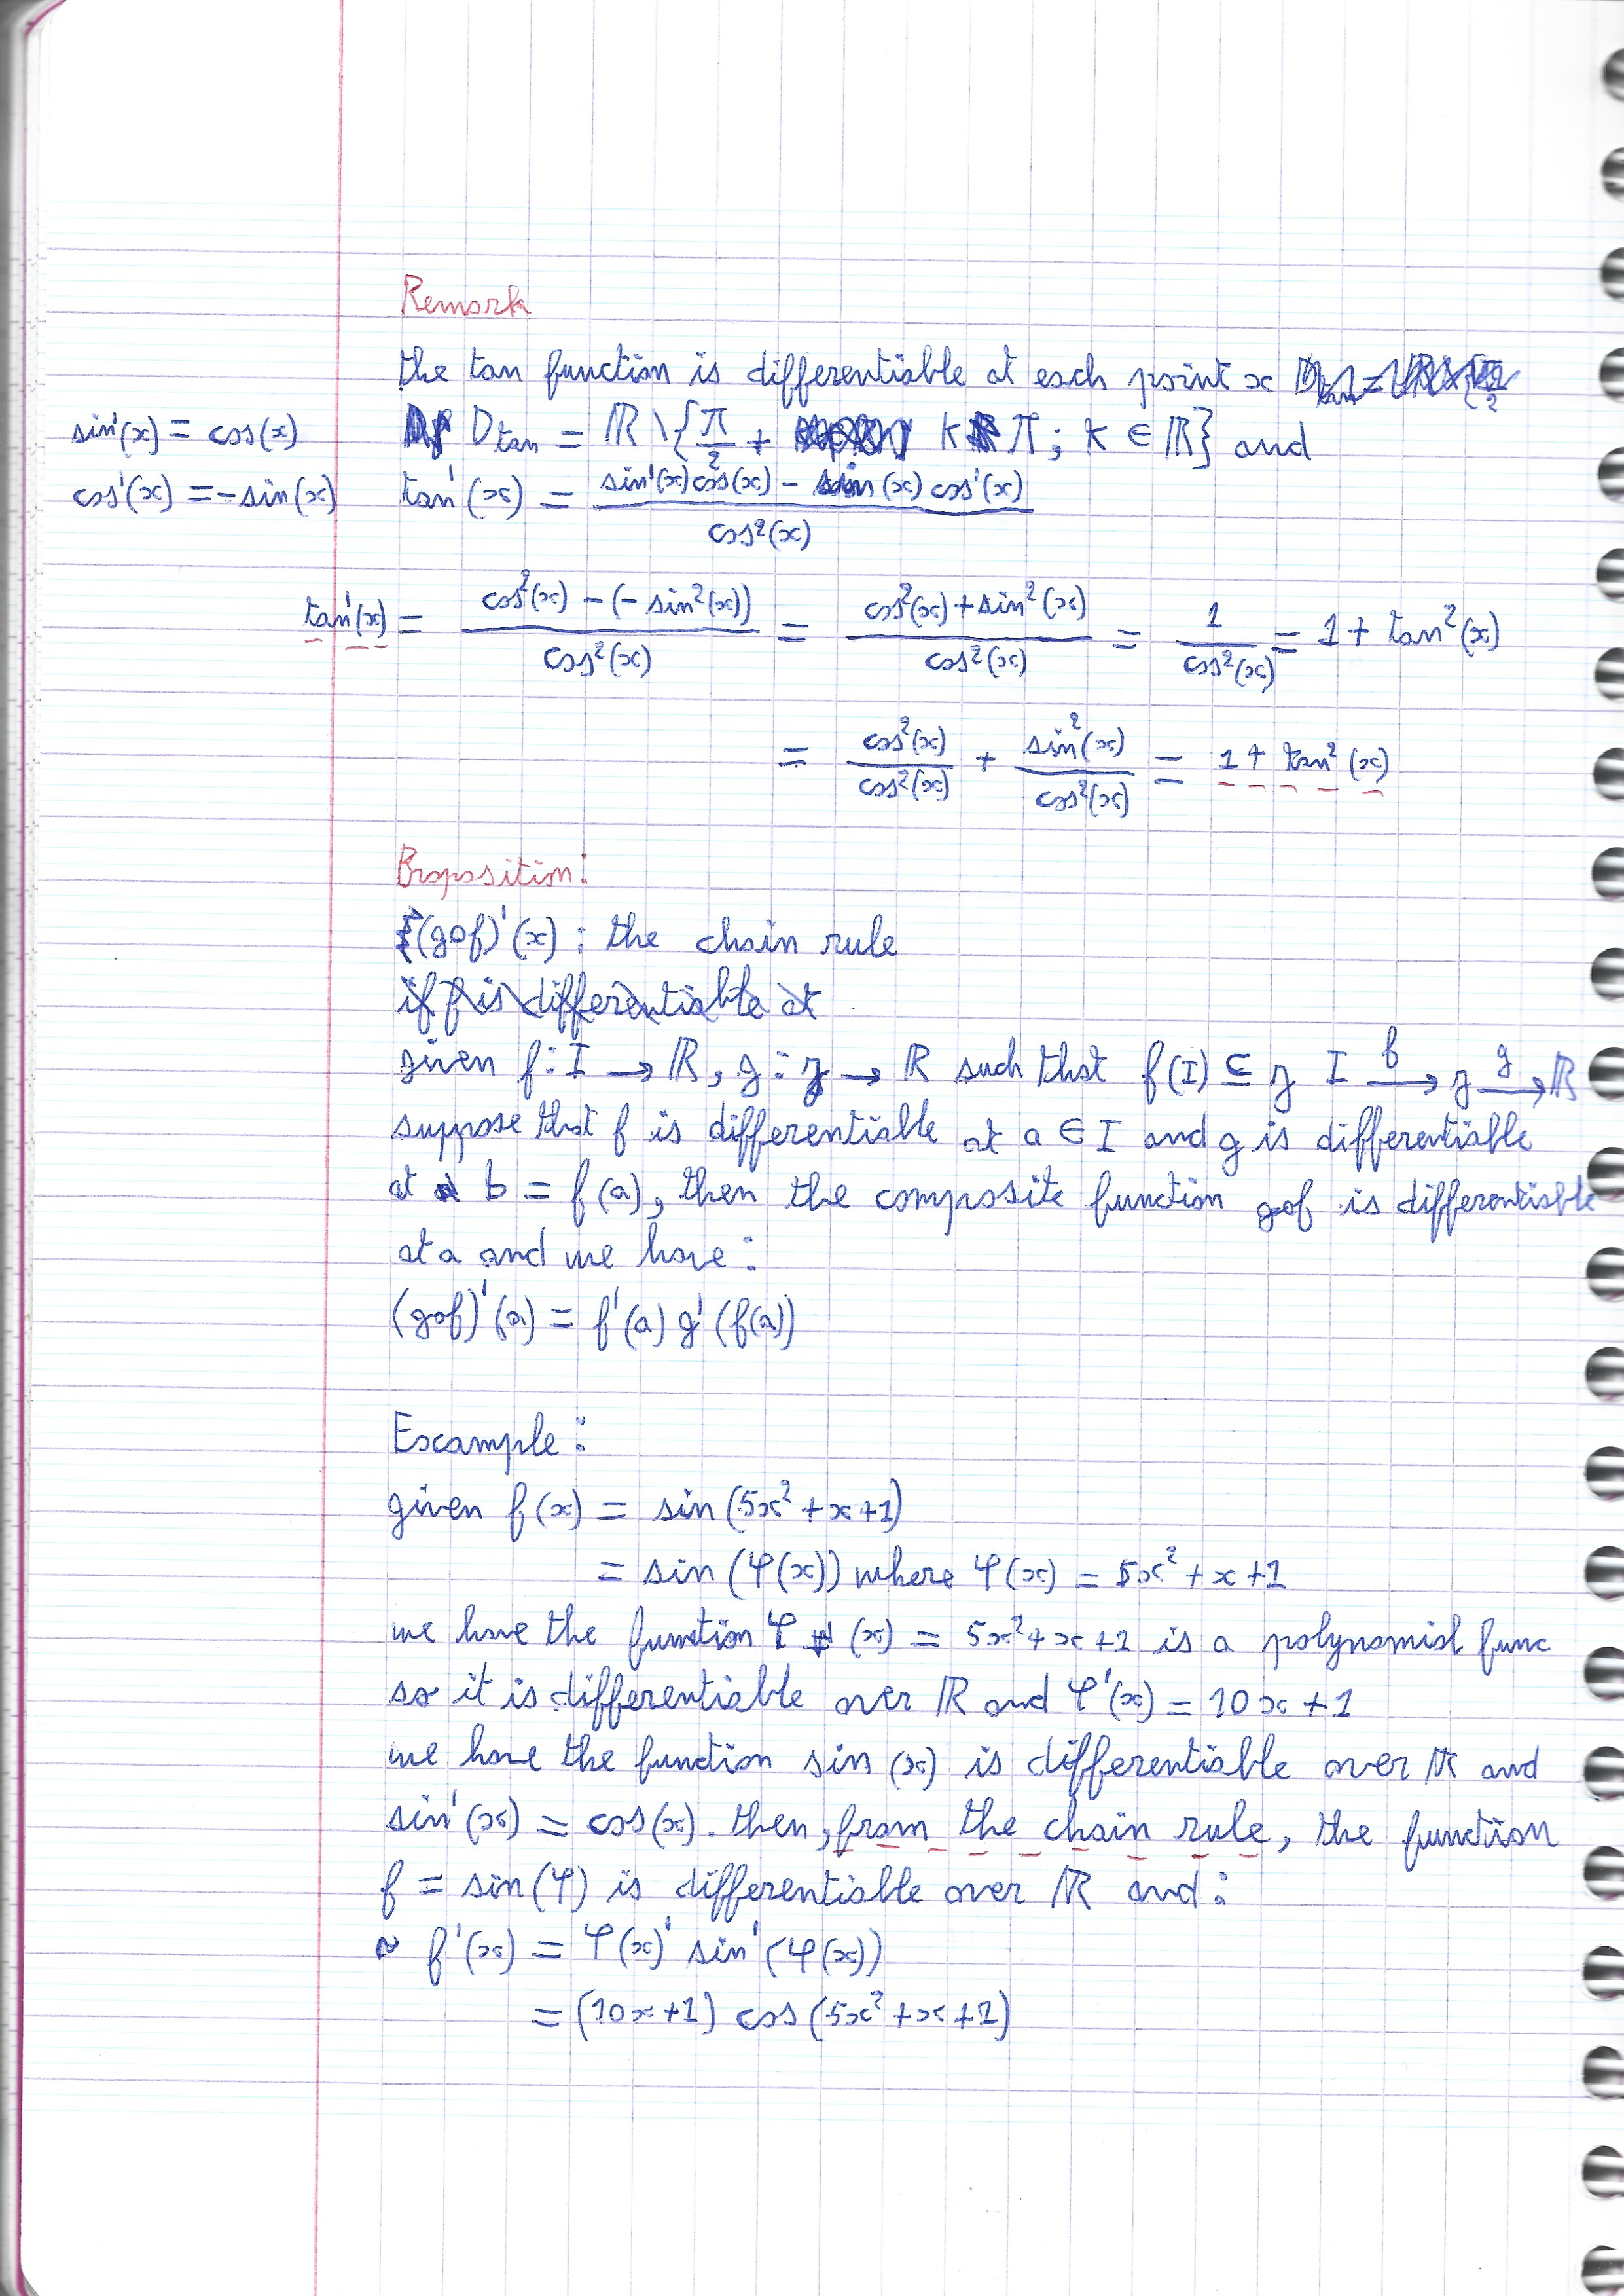 Remark
the tan function is differentiable at each point x
sin'(x) = cos(x)
D_tan = ℝ \ {π/2 + kπ ; k ∈ ℝ} and
cos'(x) = -sin(x)
tan'(x) = (sin'(x) cos(x) - sin(x) cos'(x)) / cos²(x)
tan'(x) = (cos²(x) - (-sin²(x))) / cos²(x) = (cos²(x) + sin²(x)) / cos²(x) = 1 / cos²(x) = 1 + tan²(x)
= cos²(x) / cos²(x) + sin²(x) / cos²(x) = 1 + tan²(x)
Proposition:
(gof)'(x) : the chain rule
if f is differentiable at
given f: I → ℝ, g: J → ℝ such that f(I) ⊆ J I →f J →g ℝ
suppose that f is differentiable at a ∈ I and g is differentiable
at b = f(a), then the composite function gof is differentiable
at a and we have:
(gof)'(a) = f'(a) g'(f(a))
Example:
given f(x) = sin(5x² + x + 1)
= sin(φ(x)) where φ(x) = 5x² + x + 1
we have the function φ(x) = 5x² + x + 1 is a polynomial func
so it is differentiable over ℝ and φ'(x) = 10x + 1
we have the function sin(x) is differentiable over ℝ and
sin'(x) = cos(x). then, from the chain rule, the function
f = sin(φ) is differentiable over ℝ and:
~ f'(x) = φ(x)' sin'(φ(x))
= (10x + 1) cos(5x² + x + 1)